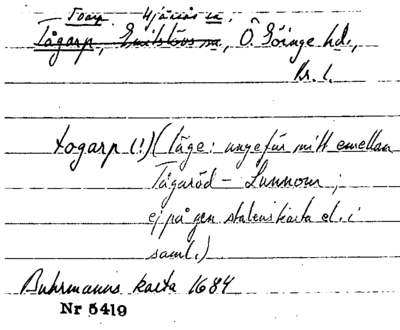 Toarp Hjärsås sn,
Tågarp, Emitslövs sn, Ö. Göinge hd.,
Kr. l.
togarp (!) (läge: ungefär mitt emellan
Tågaröd - Lunnom;
ej på gen. stabens karta el. i
saml.)
Buhrmanns karta 1684
Nr 5419